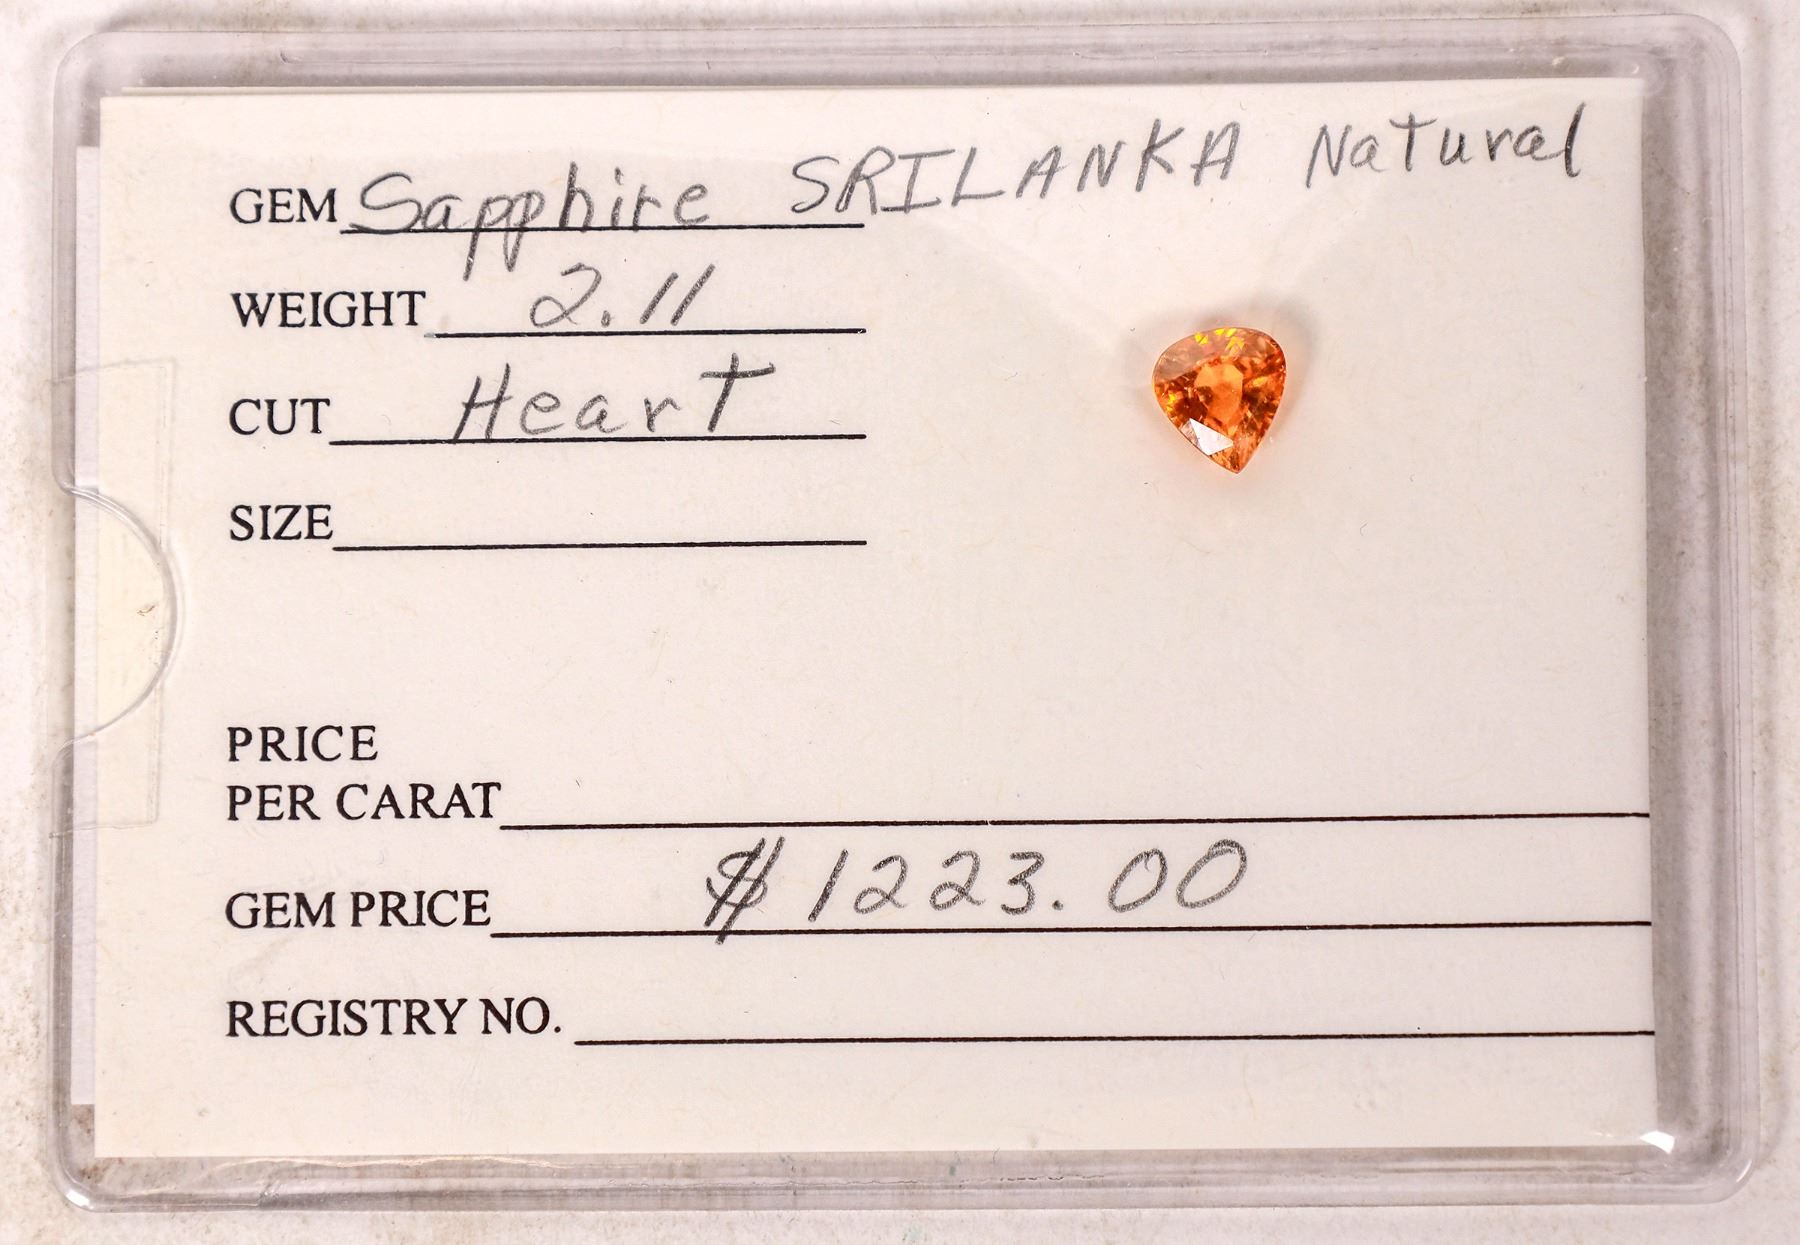 GEM Sapphire SRILANKA Natural
WEIGHT 2.11
CUT Heart
SIZE
PRICE
PER CARAT
GEM PRICE $1223.00
REGISTRY NO.